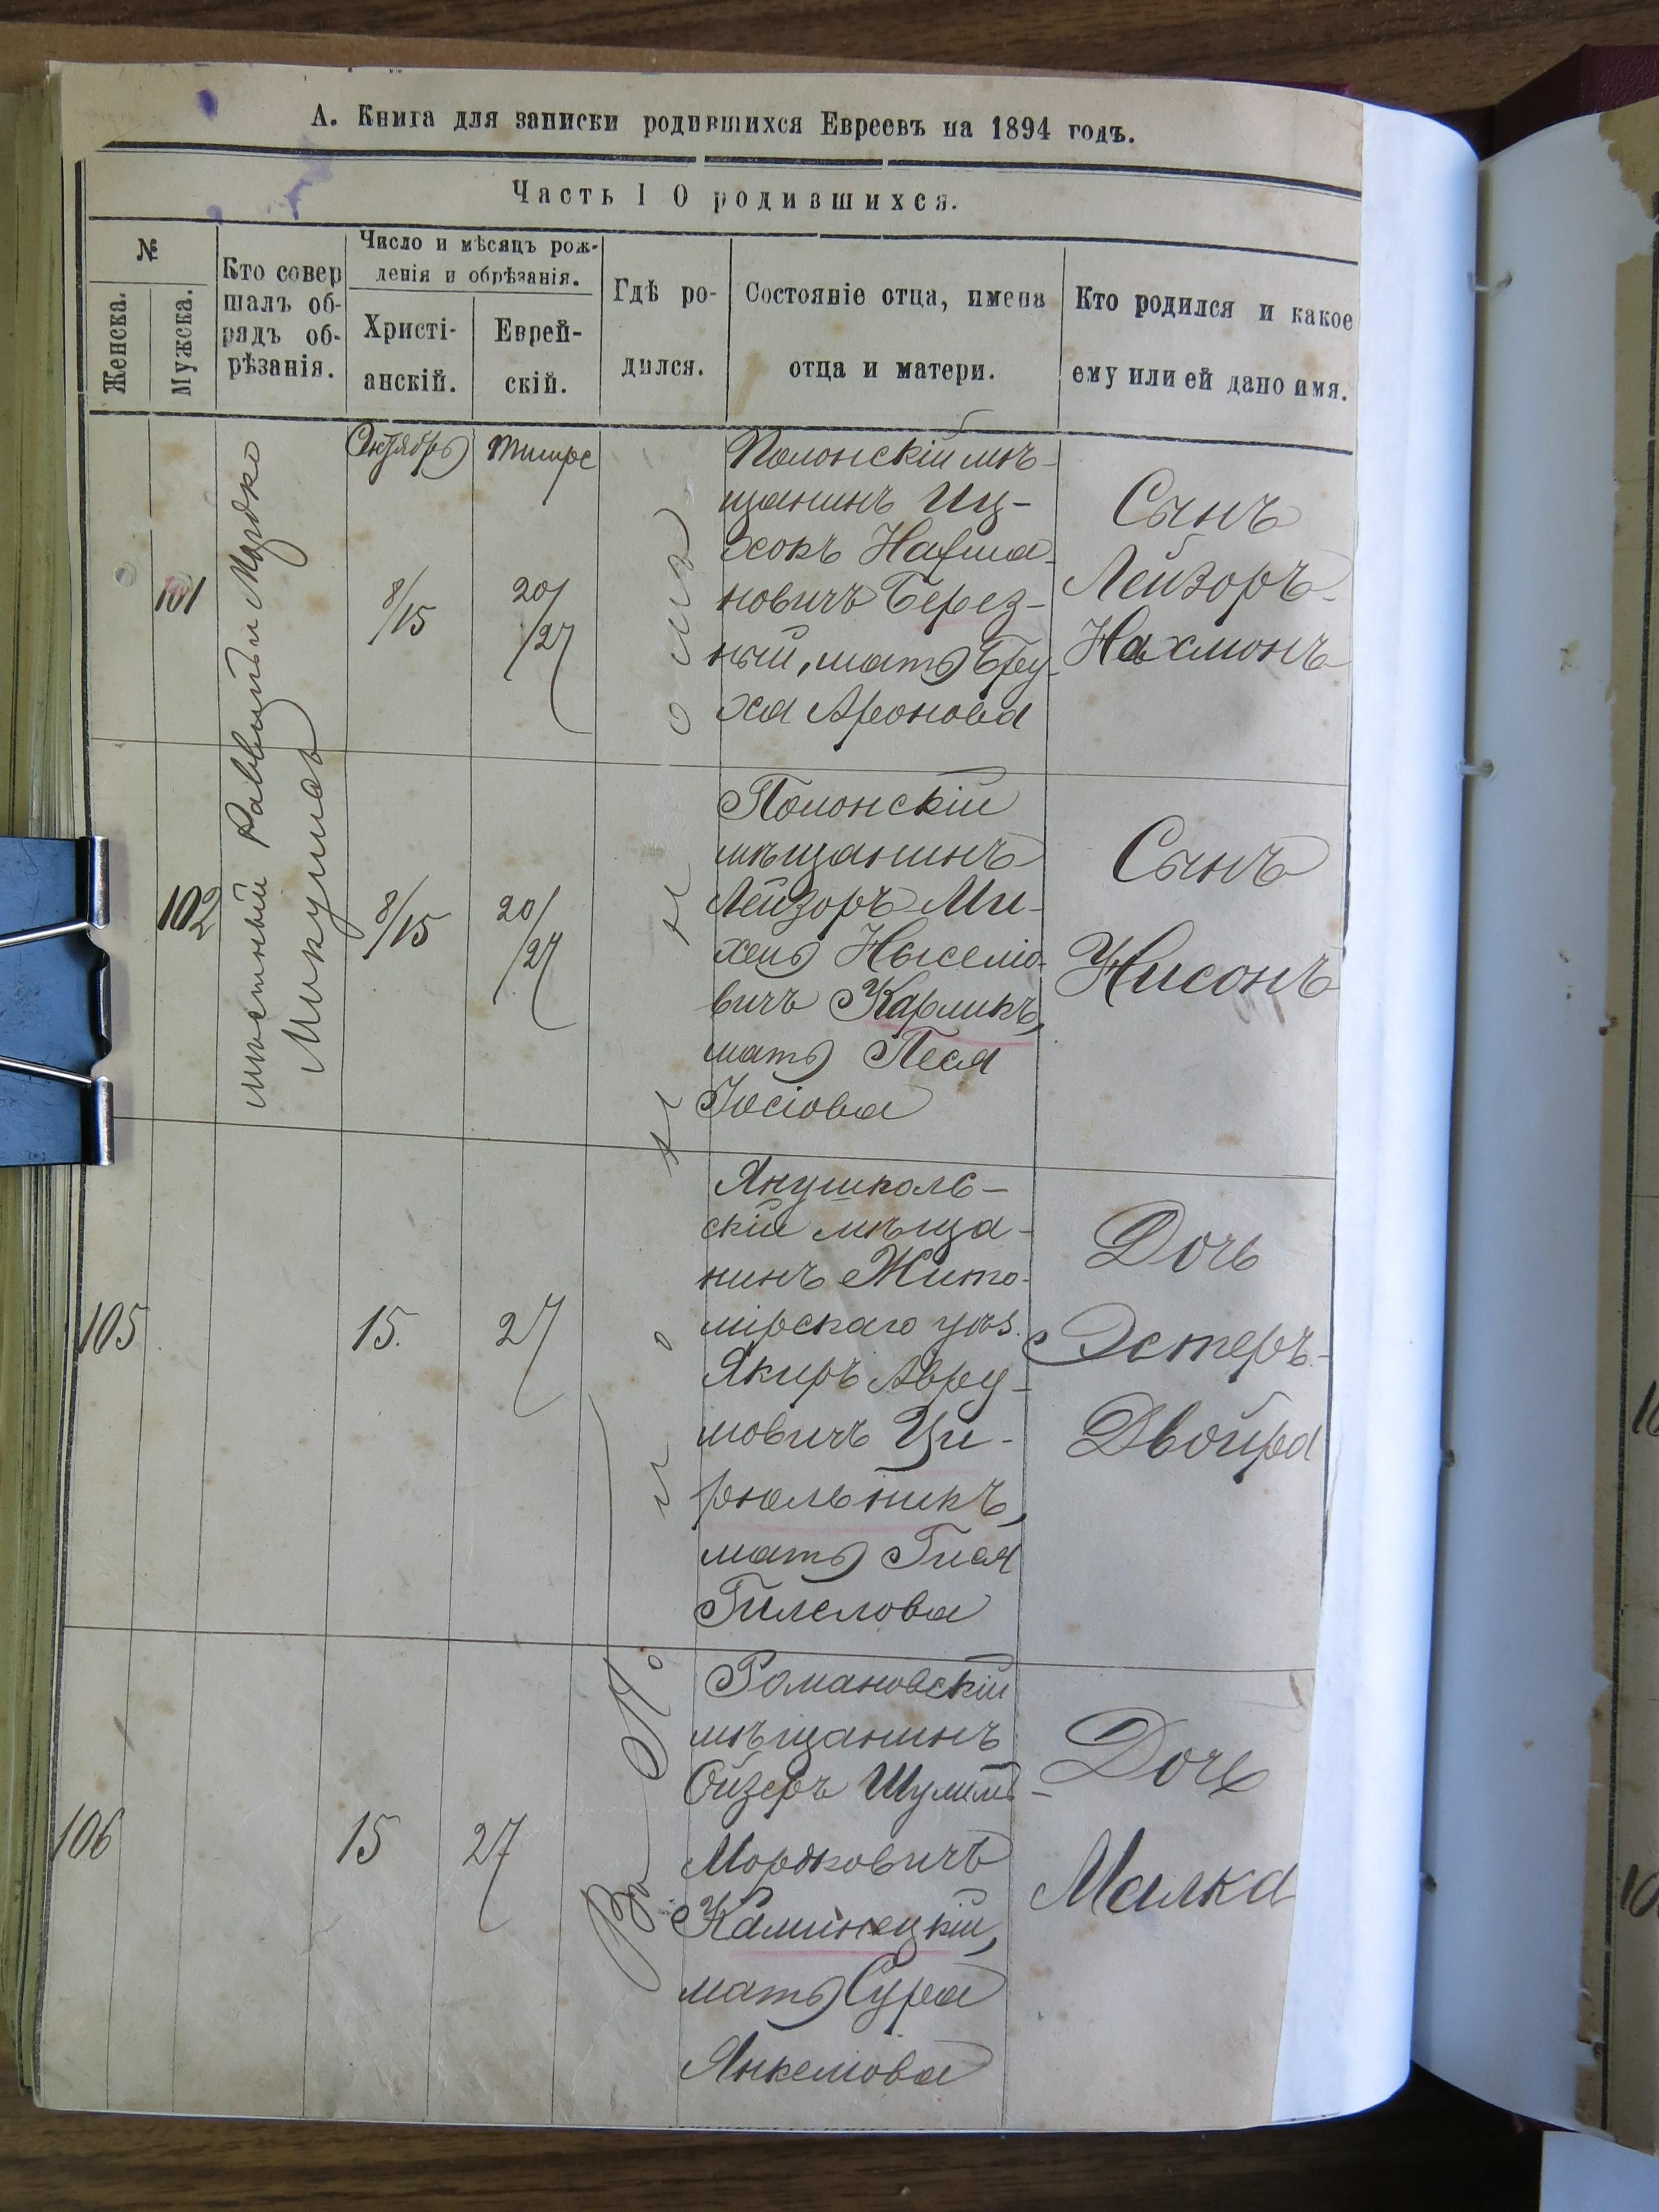 А. Книга для записки родившихся Евреевъ на 1894 годъ.
Часть I О родившихся.
№
Женска.
Мужска.
Кто совер
шалъ об-
рядъ об-
рѣзанія.
Число и мѣсяцъ рож-
денія и обрѣзанія.
Христі-
анскій.
Еврей-
скій.
Гдѣ ро-
дился.
Состояніе отца, имена
отца и матери.
Кто родился и какое
ему или ей дано имя.
мѣстный Раввинъ Мордко
Микулиъ
101
Октябрь
8/15
Тишре
20/27
Полонскій мѣ-
щанинъ Иц-
хокъ Нафта-
новичъ Берез-
ный, мать Бру-
ха Аронова
Сынъ
Лейзоръ-
Нахмонъ
102
8/15
20/27
Полонскій
мѣщанинъ
Лейзоръ-Ми-
хель Нысело-
вичъ Карликъ,
мать Песя
Іосіова
Сынъ
Нисонъ
105
15.
27
Янушполь-
скій мѣща-
нинъ Жито-
мірскаго уѣз.
Якиръ Авру-
мовичъ Ци-
рюльникъ,
мать Гися
Гилелова
Дочь
Эстеръ-
Двойра
106
15
27
Романовскій
мѣщанинъ
Ойзеръ Шулимъ-
Мордковичъ
Каминецкій,
мать Сура
Янкелова
Дочь
Малка
Въ М.